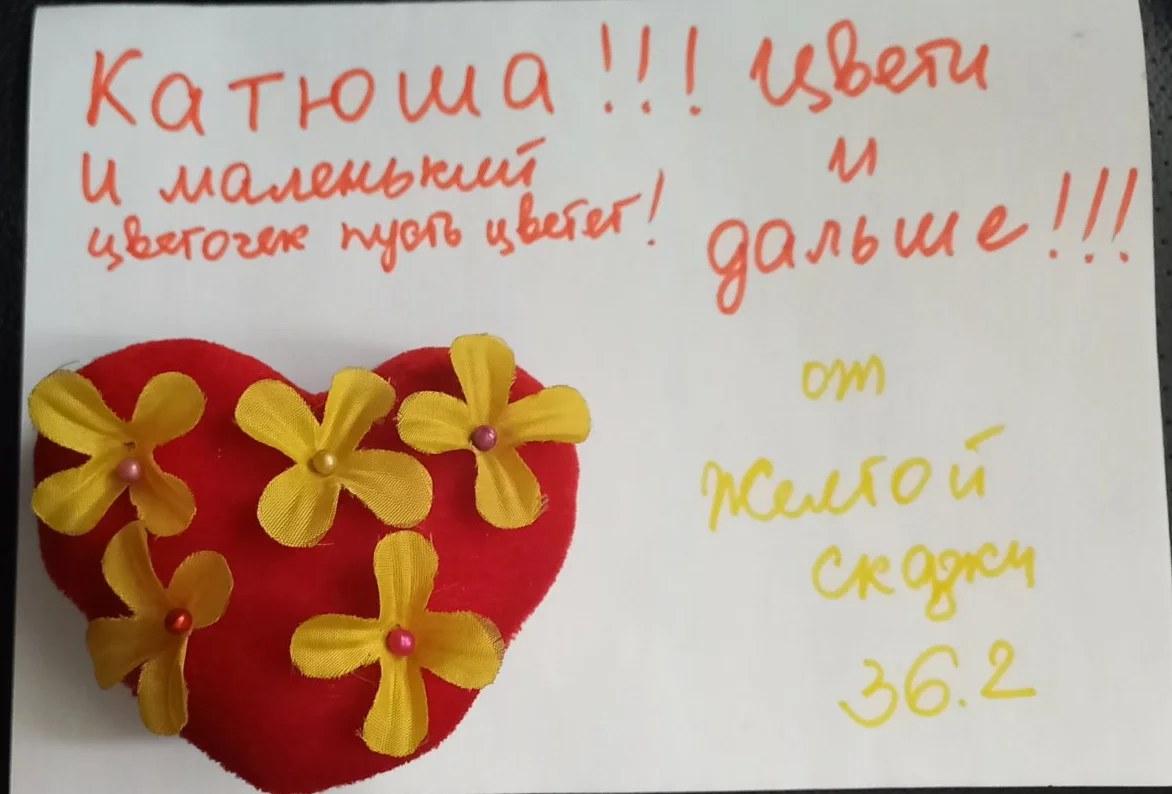 Катюша!!!
и маленький
цветочек пусть цветет!
Цвети
и
дальше!!!
от
Желтой
скажи
36.2